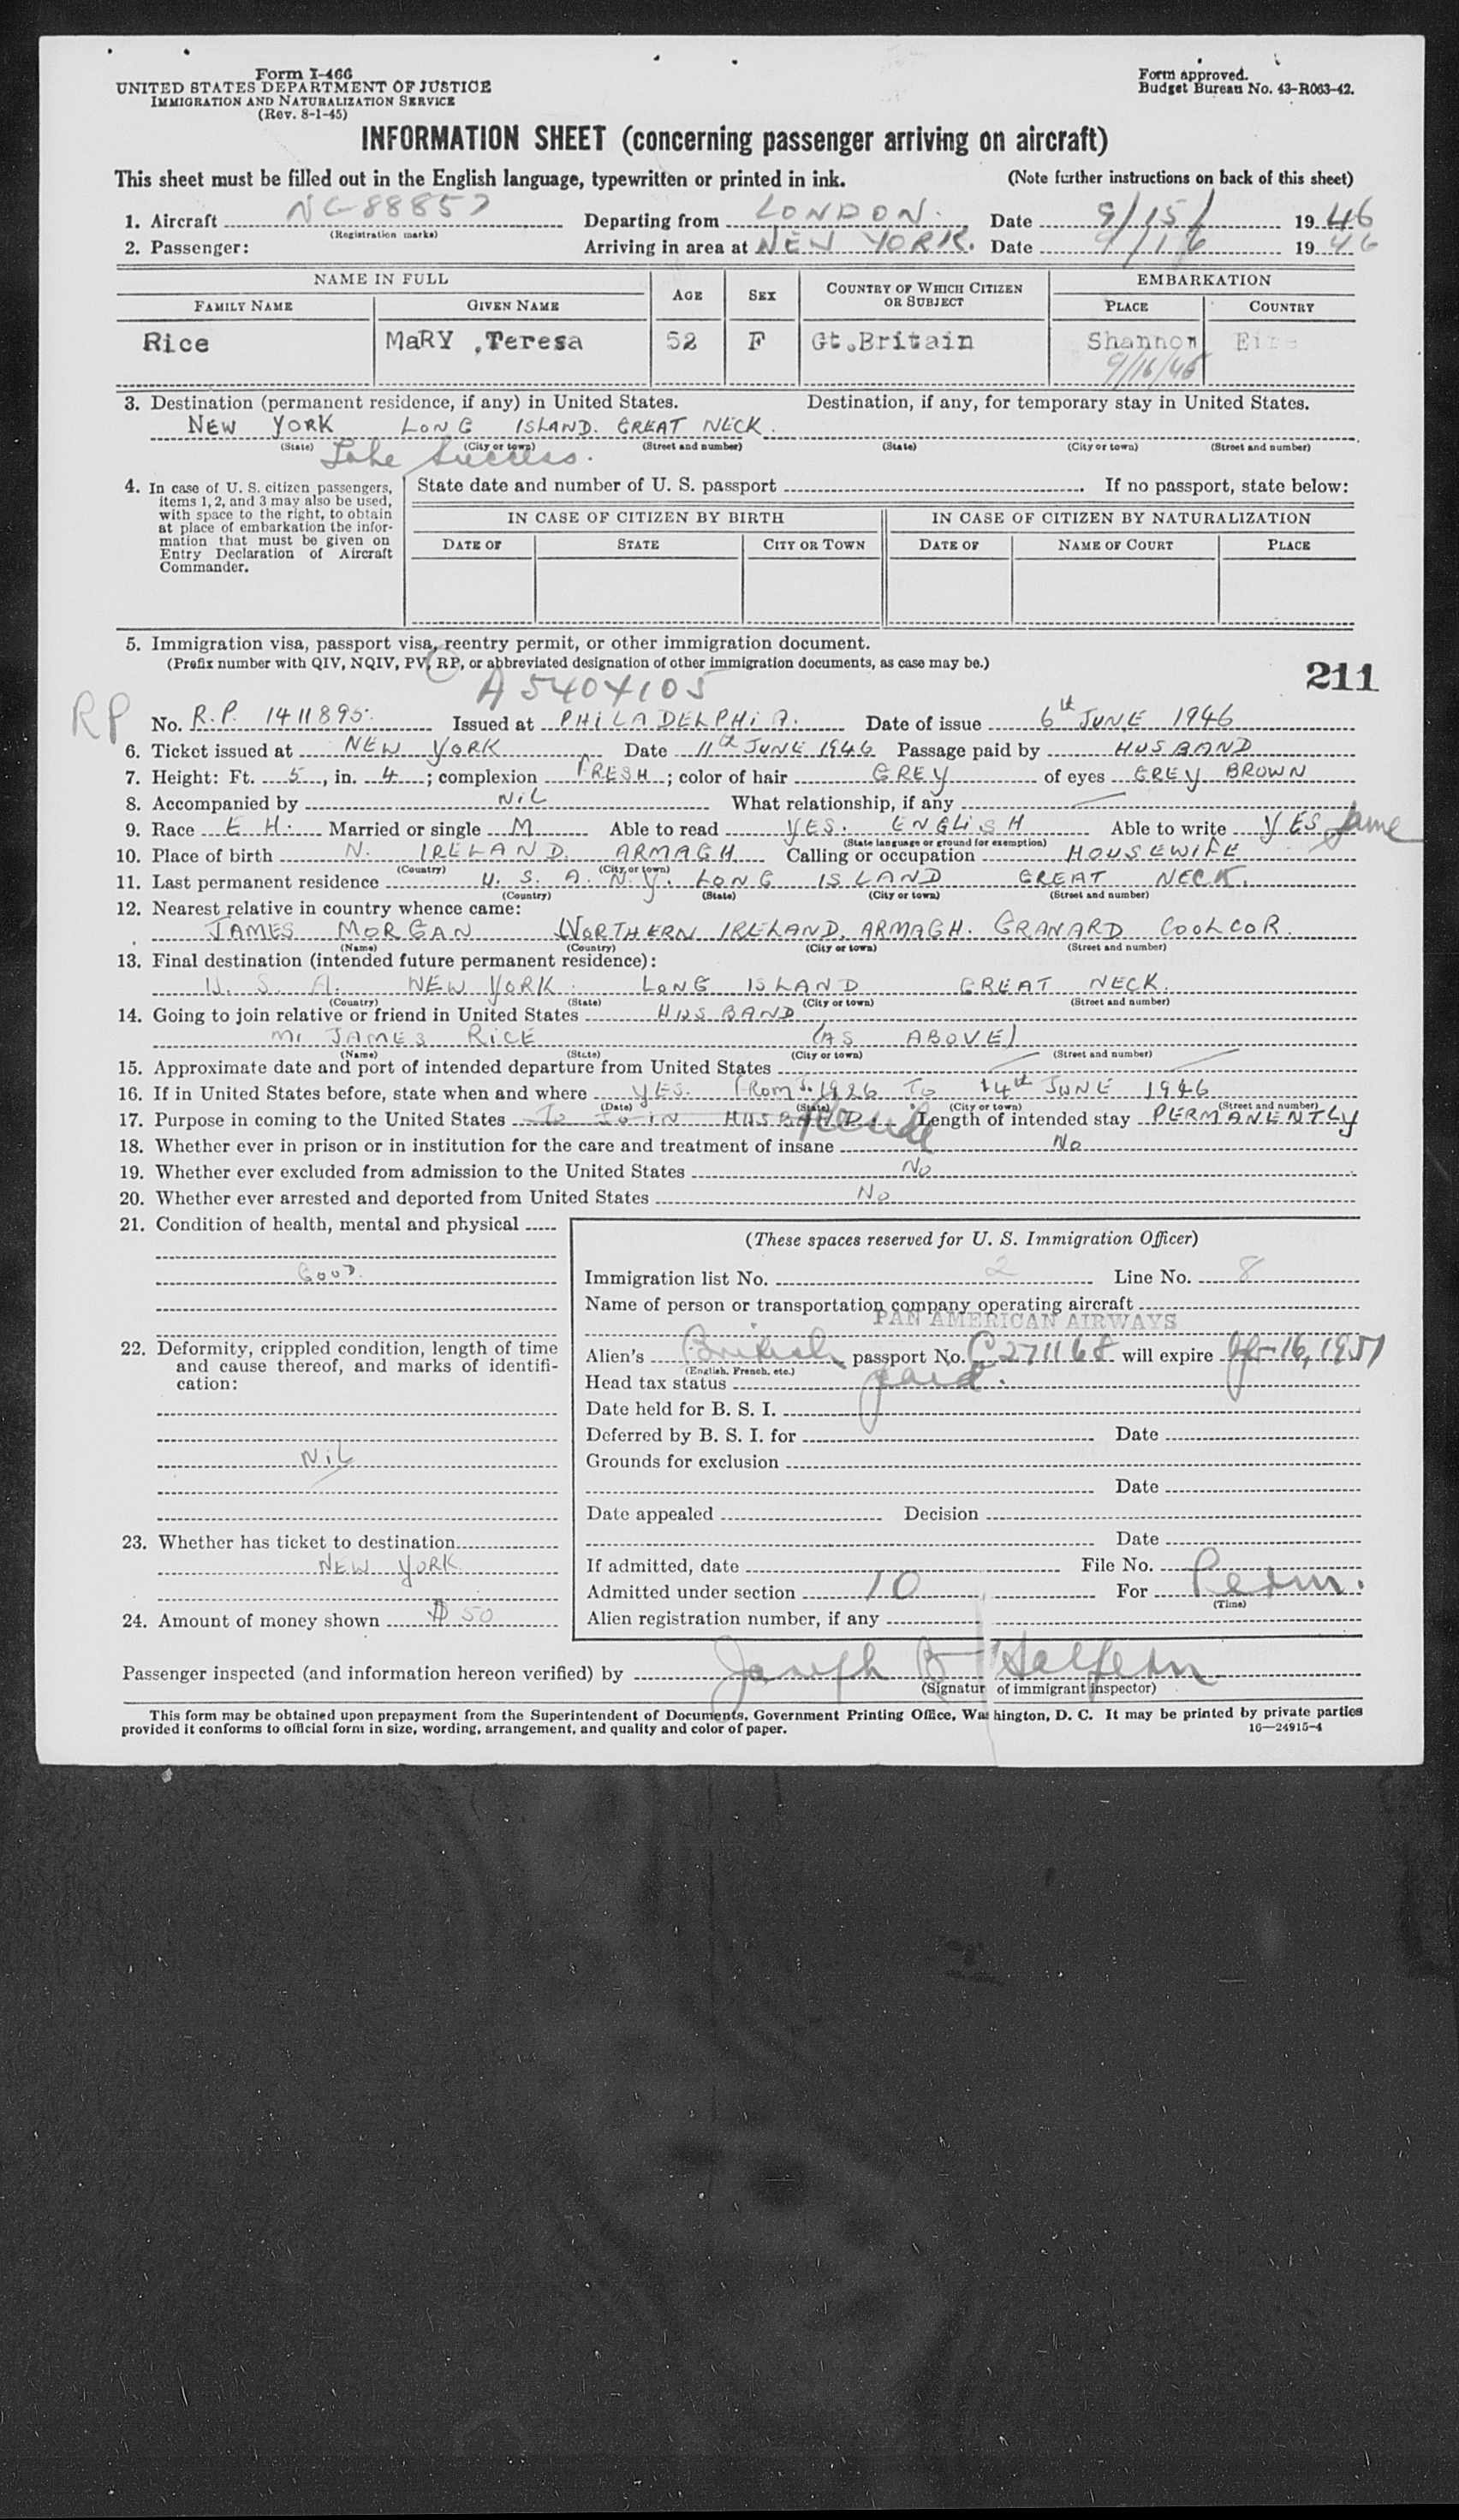 Form I-466
UNITED STATES DEPARTMENT OF JUSTICE
IMMIGRATION AND NATURALIZATION SERVICE
(Rev. 8-1-45)
Form approved.
Budget Bureau No. 43-R063-42.
INFORMATION SHEET (concerning passenger arriving on aircraft)
This sheet must be filled out in the English language, typewritten or printed in ink. (Note further instructions on back of this sheet)
1. Aircraft NC 88857 Departing from LONDON. Date 9/15/ 1946
(Registration marks)
2. Passenger: Arriving in area at NEW YORK. Date 9/16 1946
NAME IN FULL AGE SEX COUNTRY OF WHICH CITIZEN OR SUBJECT EMBARKATION
FAMILY NAME GIVEN NAME PLACE COUNTRY
Rice MaRY ,Teresa 52 F Gt.Britain Shannon Eire
9/16/46
3. Destination (permanent residence, if any) in United States. Destination, if any, for temporary stay in United States.
NEW YORK LONG ISLAND. GREAT NECK.
(State) (City or town) (Street and number) (State) (City or town) (Street and number)
Lake Success.
4. In case of U. S. citizen passengers, items 1, 2, and 3 may also be used, with space to the right, to obtain at place of embarkation the information that must be given on Entry Declaration of Aircraft Commander.
State date and number of U. S. passport If no passport, state below:
IN CASE OF CITIZEN BY BIRTH IN CASE OF CITIZEN BY NATURALIZATION
DATE OF STATE CITY OR TOWN DATE OF NAME OF COURT PLACE
5. Immigration visa, passport visa, reentry permit, or other immigration document.
(Prefix number with QIV, NQIV, PV, RP, or abbreviated designation of other immigration documents, as case may be.)
211
A 5404105
RP No. R.P. 1411895. Issued at PHILADELPHIA. Date of issue 6th JUNE 1946
6. Ticket issued at NEW YORK Date 11th JUNE 1946 Passage paid by HUSBAND
7. Height: Ft. 5, in. 4; complexion FRESH; color of hair GREY of eyes GREY BROWN
8. Accompanied by NIL What relationship, if any
9. Race E H. Married or single M Able to read YES. ENGLISH Able to write YES Same
(State language or ground for exemption)
10. Place of birth N. IRELAND. ARMAGH Calling or occupation HOUSEWIFE
(Country) (City or town)
11. Last permanent residence U. S. A. N.Y. LONG ISLAND GREAT NECK.
(Country) (State) (City or town) (Street and number)
12. Nearest relative in country whence came:
JAMES MORGAN NORTHERN IRELAND, ARMAGH. GRANARD COOLCOR.
(Name) (Country) (City or town) (Street and number)
13. Final destination (intended future permanent residence):
U. S. A. NEW YORK. LONG ISLAND GREAT NECK.
(Country) (State) (City or town) (Street and number)
14. Going to join relative or friend in United States HUSBAND
Mr JAMES RICE (AS ABOVE)
(Name) (State) (City or town) (Street and number)
15. Approximate date and port of intended departure from United States
16. If in United States before, state when and where YES. FROM 1926 TO 14th JUNE 1946
(Date) (State) (City or town) (Street and number)
17. Purpose in coming to the United States To JOIN HUSBAND. Reside Length of intended stay PERMANENTLY
18. Whether ever in prison or in institution for the care and treatment of insane No
19. Whether ever excluded from admission to the United States No
20. Whether ever arrested and deported from United States No
21. Condition of health, mental and physical
GOOD.
22. Deformity, crippled condition, length of time and cause thereof, and marks of identification:
NIL
23. Whether has ticket to destination
NEW YORK
24. Amount of money shown $ 50
(These spaces reserved for U. S. Immigration Officer)
Immigration list No. 2 Line No. 8
Name of person or transportation company operating aircraft
PAN AMERICAN AIRWAYS
Alien's British passport No. C271168 will expire Apr 16, 1951
(English, French, etc.)
Head tax status paid.
Date held for B. S. I.
Deferred by B. S. I. for Date
Grounds for exclusion
Date
Date appealed Decision
Date
If admitted, date File No.
Admitted under section 10 For Perm.
(Time)
Alien registration number, if any
Passenger inspected (and information hereon verified) by Joseph B Halpern
(Signatur of immigrant inspector)
This form may be obtained upon prepayment from the Superintendent of Documents, Government Printing Office, Washington, D. C. It may be printed by private parties
provided it conforms to official form in size, wording, arrangement, and quality and color of paper. 16—24915-4